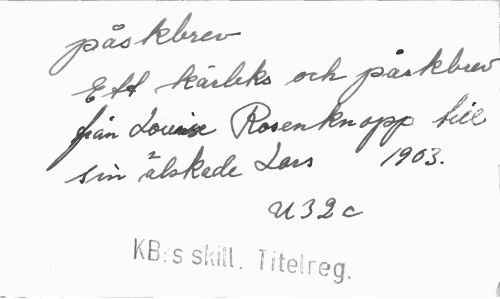 påskbrev
Ett kärleks och påskbrev
från Louise Rosenknopp till
sin älskade Lars 1903.
U 32 c
KB:s skill. Titelreg.